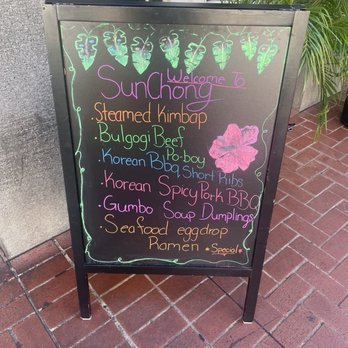 Welcome To
SunChong
Steamed Kimbap
· Bulgogi Beef
Po-boy
· Korean Bbq Short Ribs
· Korean Spicy Pork BBQ
· Gumbo Soup Dumplings
· Seafood eggdrop
Ramen *Special*